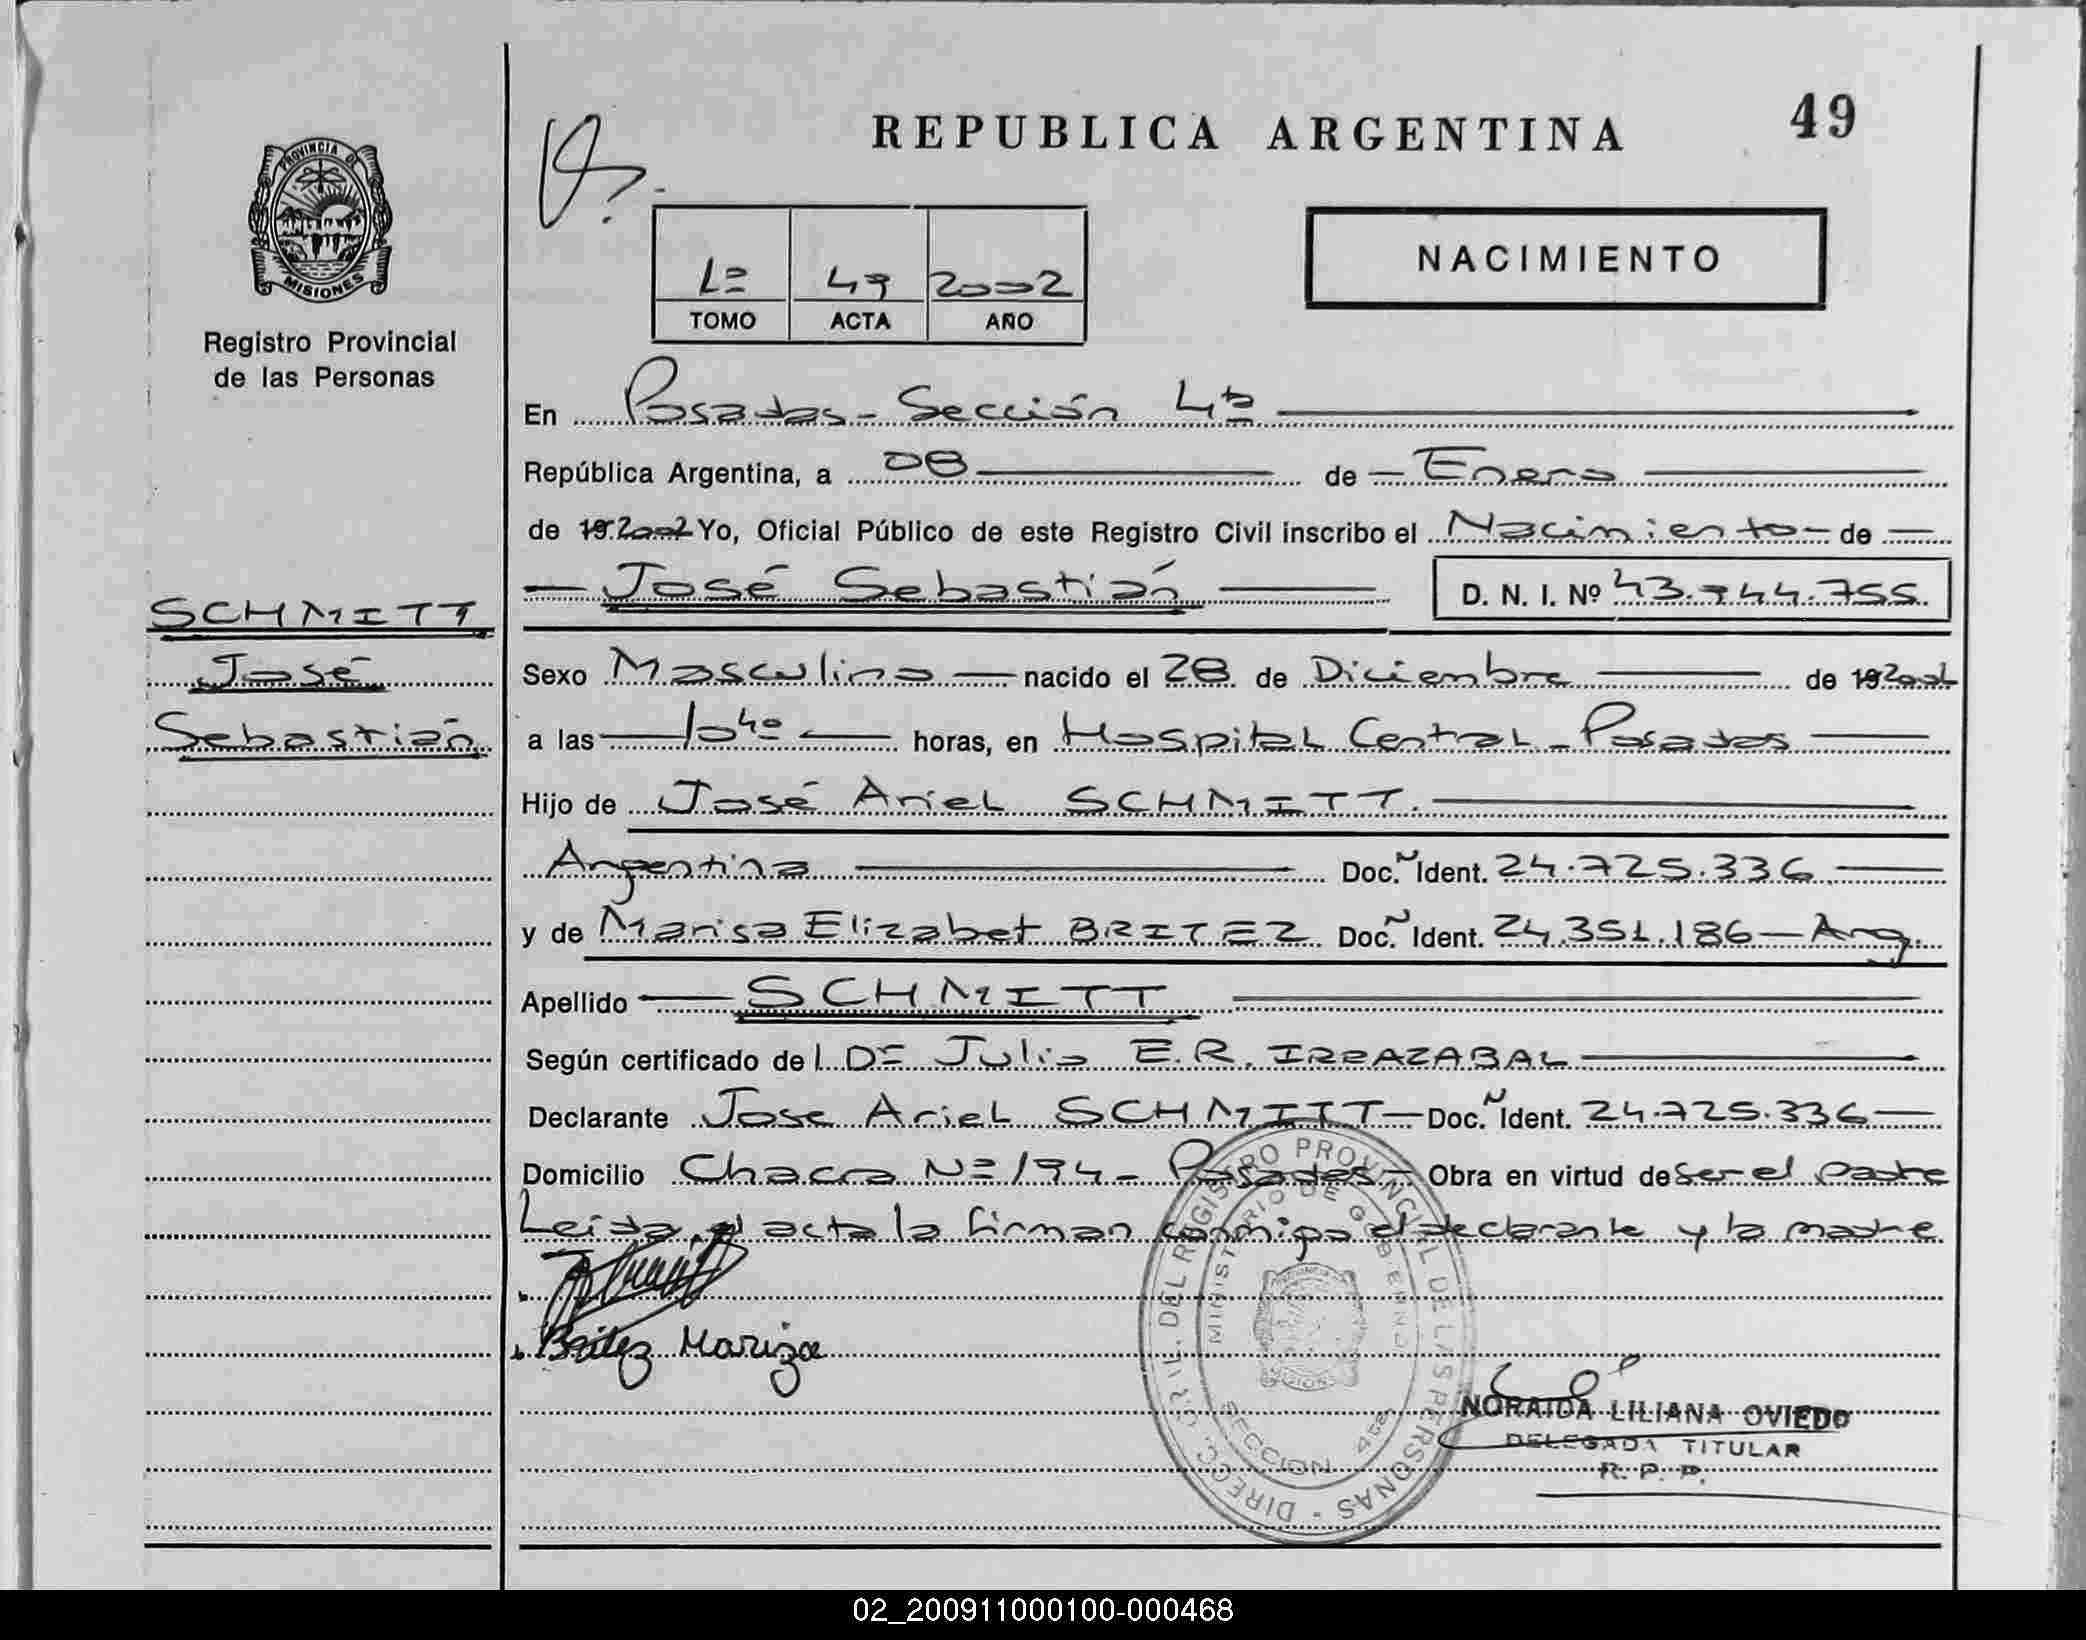 REPUBLICA ARGENTINA
49
PROVINCIA DE
MISIONES
Registro Provincial
de las Personas
1º 49 2002
TOMO ACTA AÑO
NACIMIENTO
En Posadas - Sección 4ta
República Argentina, a 08 de Enero
de 19 2002 Yo, Oficial Público de este Registro Civil inscribo el Nacimiento de
José Sebastián D. N. I. Nº 43.744.755
SCHMITT
José
Sebastián
Sexo Masculino nacido el 28 de Diciembre de 19 2001
a las 10 40 horas, en Hospital Central - Posadas
Hijo de José Ariel SCHMITT.
Argentina Doc. Ident. 24.725.336
y de Marisa Elizabet BRITEZ Doc. Ident. 24.351.186 - Arg.
Apellido SCHMITT
Según certificado del Dr Julio E.R. IRRAZABAL
Declarante Jose Ariel SCHMITT - Doc. Ident. 24.725.336
Domicilio Chacra Nº 194 - Posadas - Obra en virtud de ser el padre
Leida el acta la firman conmigo el declarante y la madre
Britez Mariza
DIRECC. GRAL. DEL REGISTRO PROVINCIAL DE LAS PERSONAS
MINISTERIO DE GOBIERNO
SECCION 4ta
NORAIDA LILIANA OVIEDO
DELEGADA TITULAR
R. P. P.
02_200911000100-000468